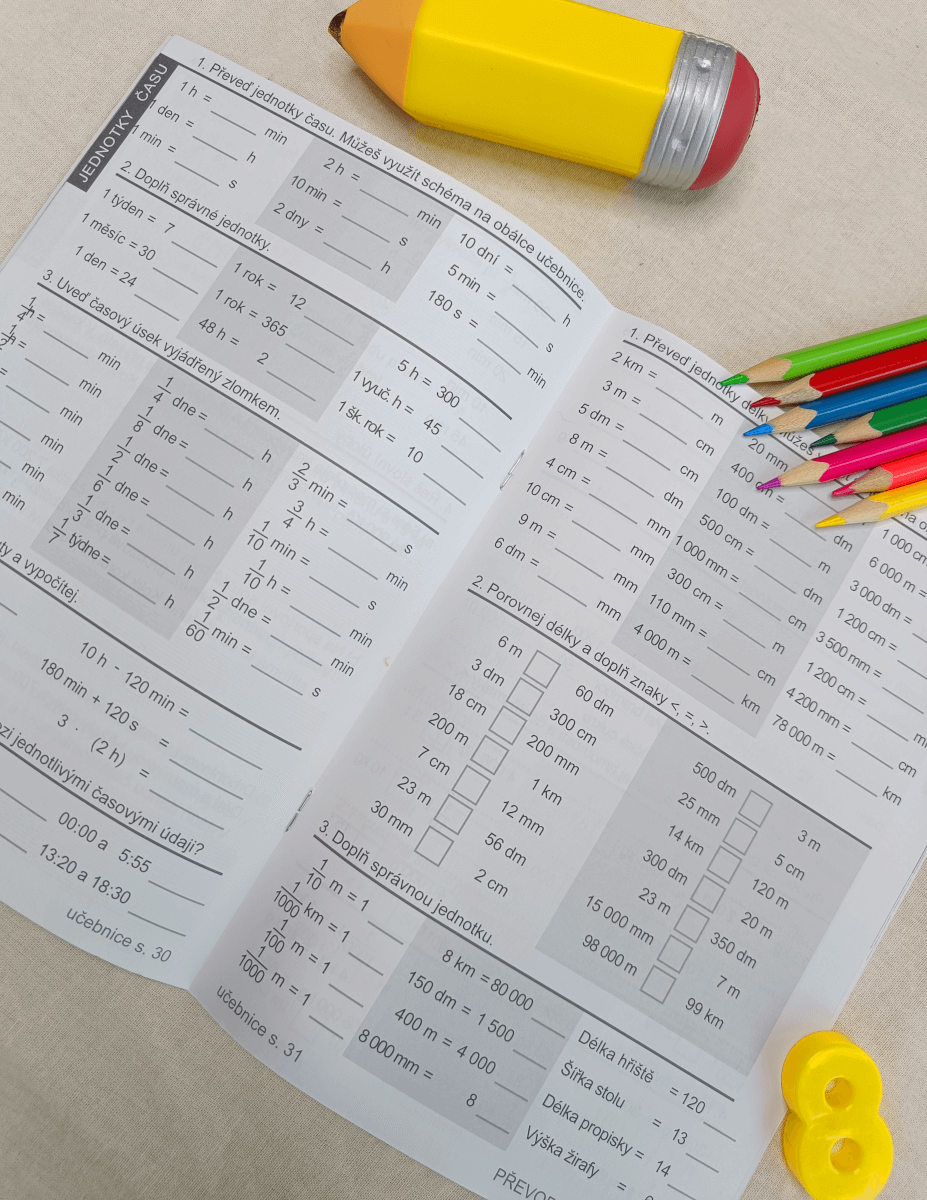 JEDNOTKY ČASU
1. Převeď jednotky času. Můžeš využít schéma na obálce učebnice.
1 h = min
1 den = h
1 min = s
2 h = min
10 min = s
2 dny = h
10 dní = h
5 min = s
180 s = min
2. Doplň správné jednotky.
1 týden = 7
1 měsíc = 30
1 den = 24
1 rok = 12
1 rok = 365
48 h = 2
5 h = 300
1 vyuč. h = 45
1 šk. rok = 10
3. Uveď časový úsek vyjádřený zlomkem.
1/4 h = min
h = min
= min
min
min
min
1/4 dne = h
1/8 dne = h
1/2 dne = h
1/6 dne = h
1/3 dne = h
1/7 týdne = h
2/3 min = s
3/4 h = min
1/10 min = s
1/10 h = min
1/2 dne = min
1/60 min = s
a vypočítej.
10 h - 120 min =
180 min + 120 s =
3 . (2 h) =
jednotlivými časovými údaji?
00:00 a 5:55
13:20 a 18:30
učebnice s. 30
1. Převeď jednotky délky.
2 km = m
3 m = cm
5 dm = cm
8 m = dm
4 cm = mm
10 cm = mm
9 m = mm
6 dm = mm
20 mm
400
100 dm = dm
500 cm = m
1 000 mm = dm
300 cm = cm
110 mm = m
4 000 m = cm
km
1 000 cm
6 000 m =
3 000 dm =
1 200 cm =
3 500 mm =
1 200 cm =
4 200 mm = cm
78 000 m = km
2. Porovnej délky a doplň znaky <, =, >.
6 m 60 dm
3 dm 300 cm
18 cm 200 mm
200 m 1 km
7 cm 12 mm
23 m 56 dm
30 mm 2 cm
500 dm 3 m
25 mm 5 cm
14 km 120 m
300 dm 20 m
23 m 350 dm
15 000 mm 7 m
98 000 m 99 km
3. Doplň správnou jednotku.
1/10 m = 1
1/1000 km = 1
1/100 m = 1
1/1000 m = 1
8 km = 80 000
150 dm = 1 500
400 m = 4 000
8 000 mm = 8
Délka hřiště = 120
Šířka stolu = 13
Délka propisky = 14
Výška žirafy =
učebnice s. 31
8